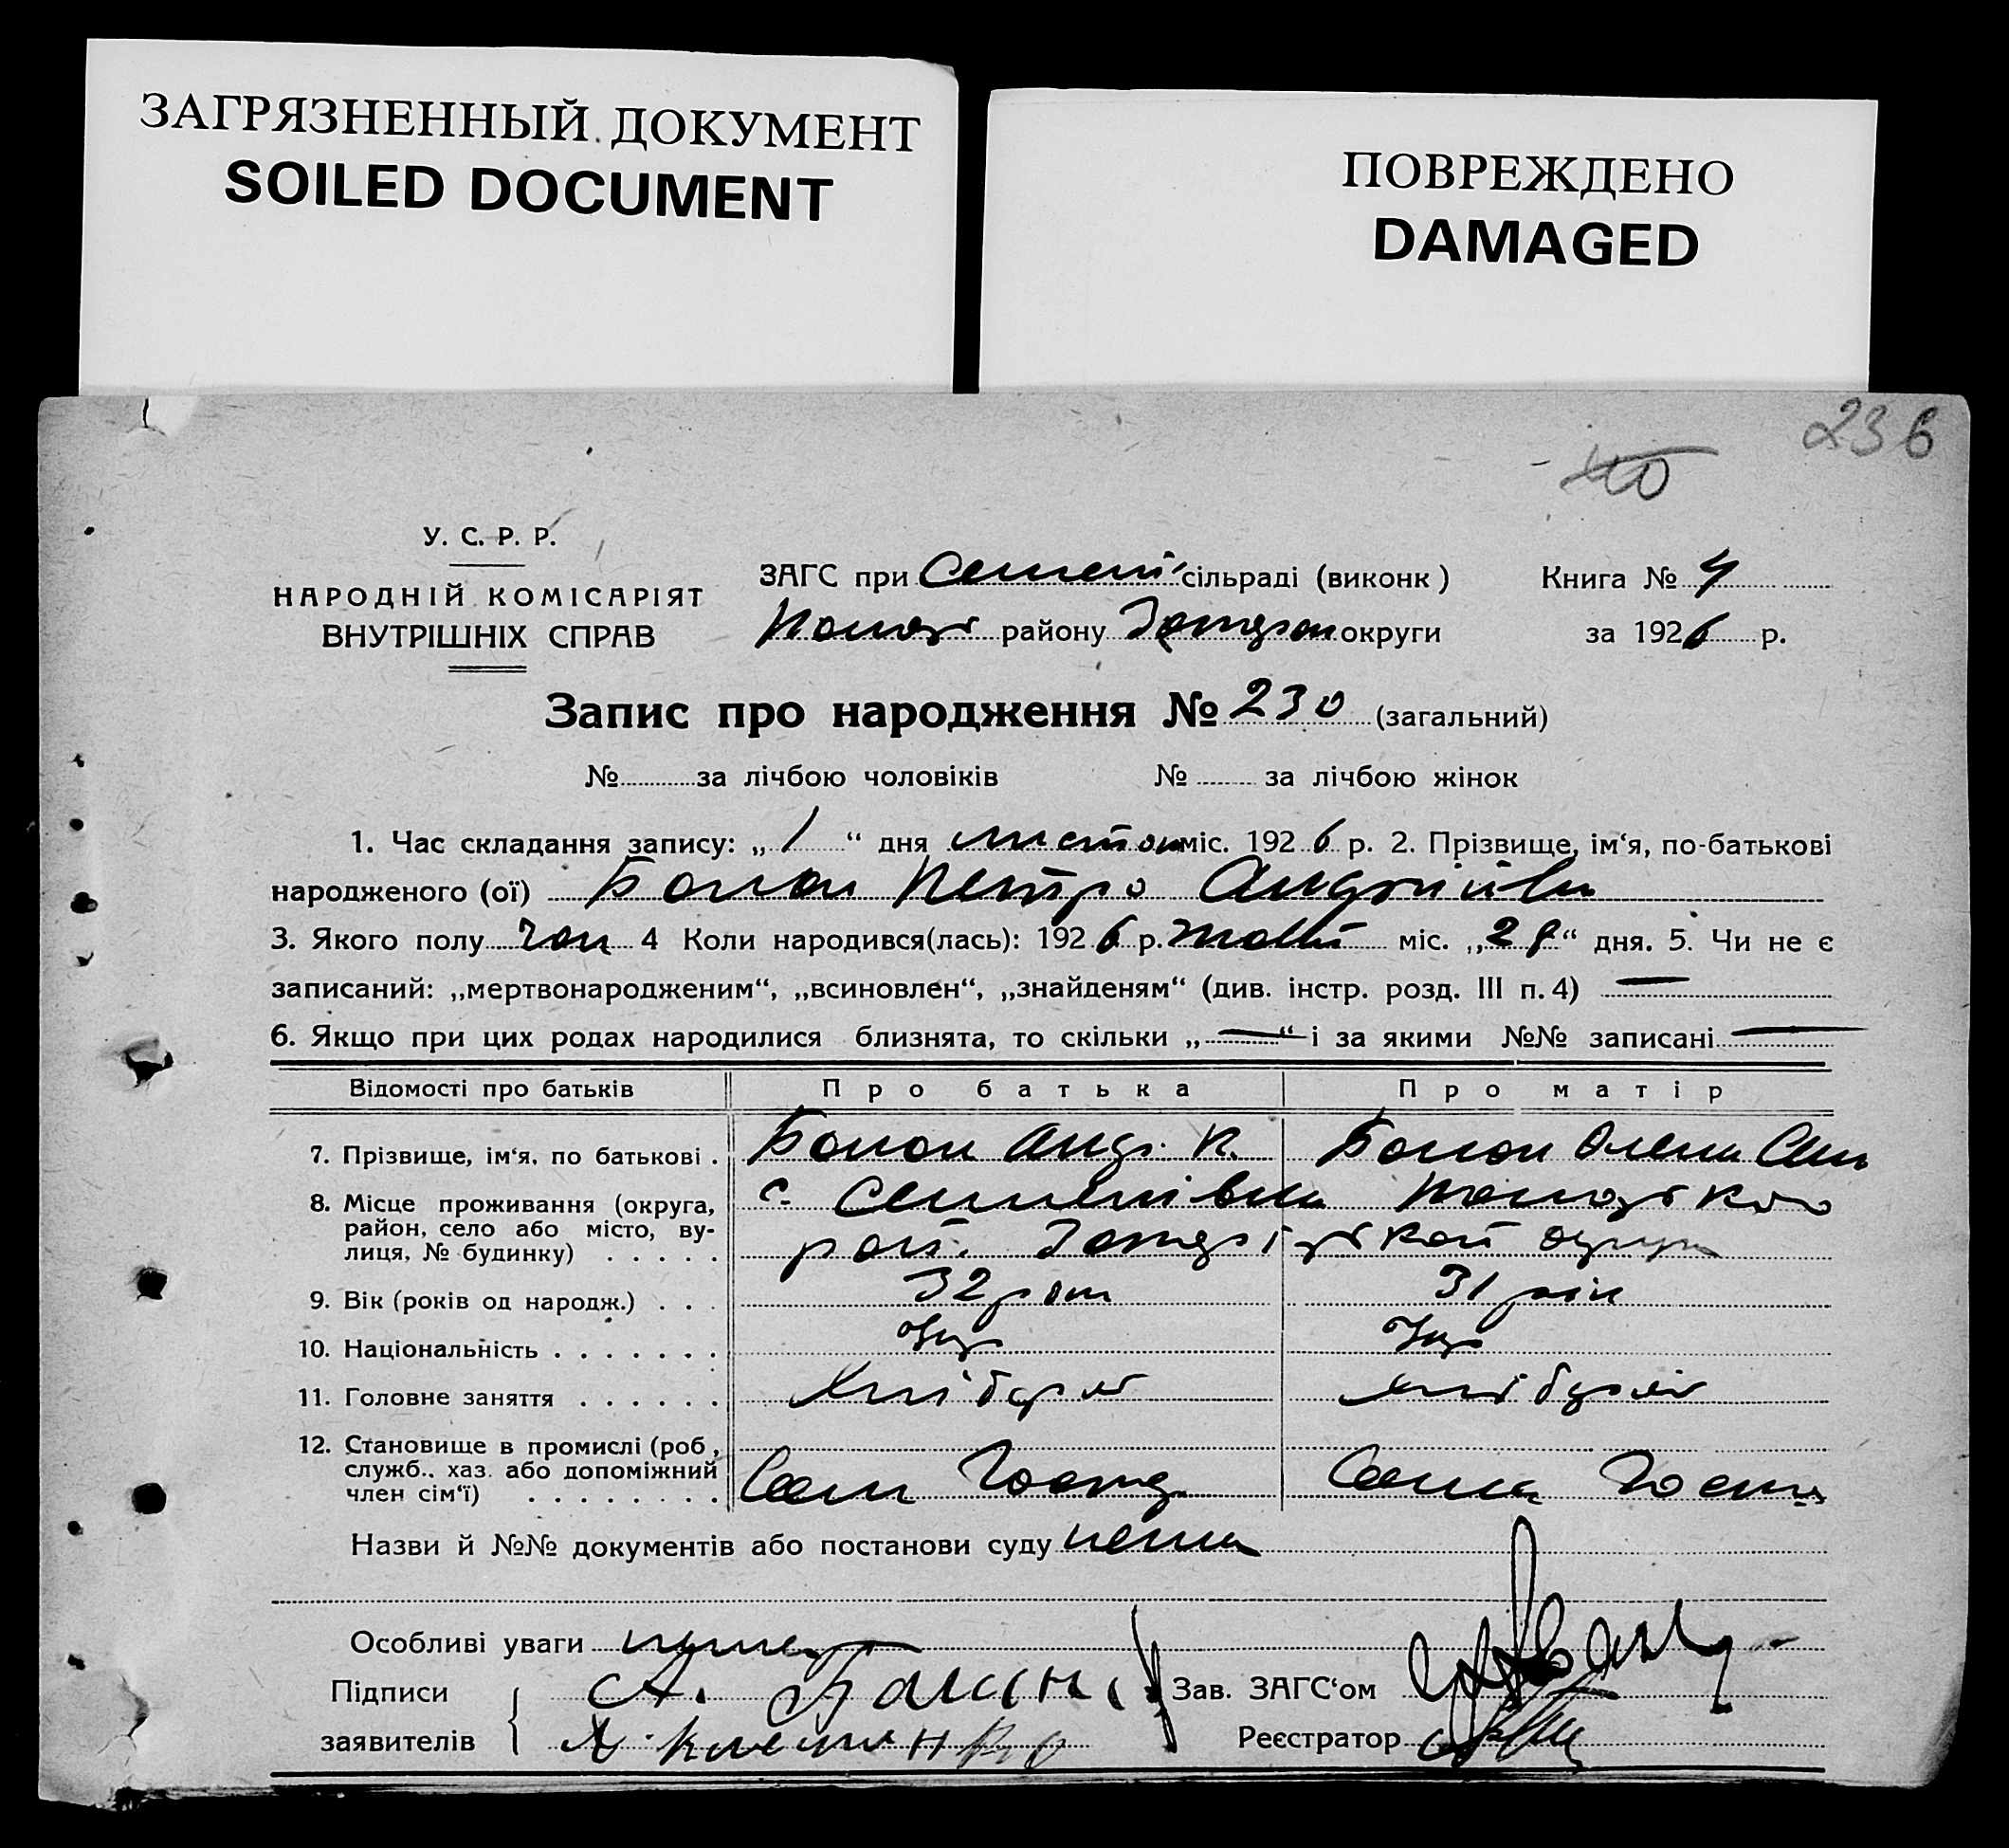 ЗАГРЯЗНЕННЫЙ ДОКУМЕНТ
SOILED DOCUMENT
ПОВРЕЖДЕНО
DAMAGED
236
40
У. С. Р. Р.
НАРОДНІЙ КОМІСАРІЯТ
ВНУТРІШНІХ СПРАВ
ЗАГС при Семені сільраді (виконк) Книга № 4
району округи за 1926 р.
Запис про народження № 230 (загальний)
№ за лічбою чоловіків № за лічбою жінок
1. Час складання запису: „1“ дня листоп міс. 1926 р. 2. Прізвище, ім‘я, по-батькові
народженого (ої) Петро Андрійов
3. Якого полу чол 4 Коли народився(лась): 1926 р. жовт міс. „28“ дня. 5. Чи не є
записаний: „мертвонародженим“, „всиновлен“, „знайденям“ (див. інстр. розд. III п. 4) —
6. Якщо при цих родах народилися близнята, то скільки „—“ і за якими №№ записані —
Відомості про батьків Про батька Про матір
7. Прізвище, ім‘я, по батькові . Андр. К. Олена Сем
8. Місце проживання (округа, район, село або місто, вулиця, № будинку) с. Семенівка
рай. округи
9. Вік (років од народж.) . . . 32 рок 31 рік
10. Національність . . . . . . . Укр Укр
11. Головне заняття . . . . . . Хлібороб хлібороб
12. Становище в промислі (роб, служб., хаз. або допоміжний член сім‘ї) Сам Господ Сама Господ
Назви й №№ документів або постанови суду нема
Особливі уваги нема
Підписи А. Зав. ЗАГС‘ом
заявителів Реєстратор